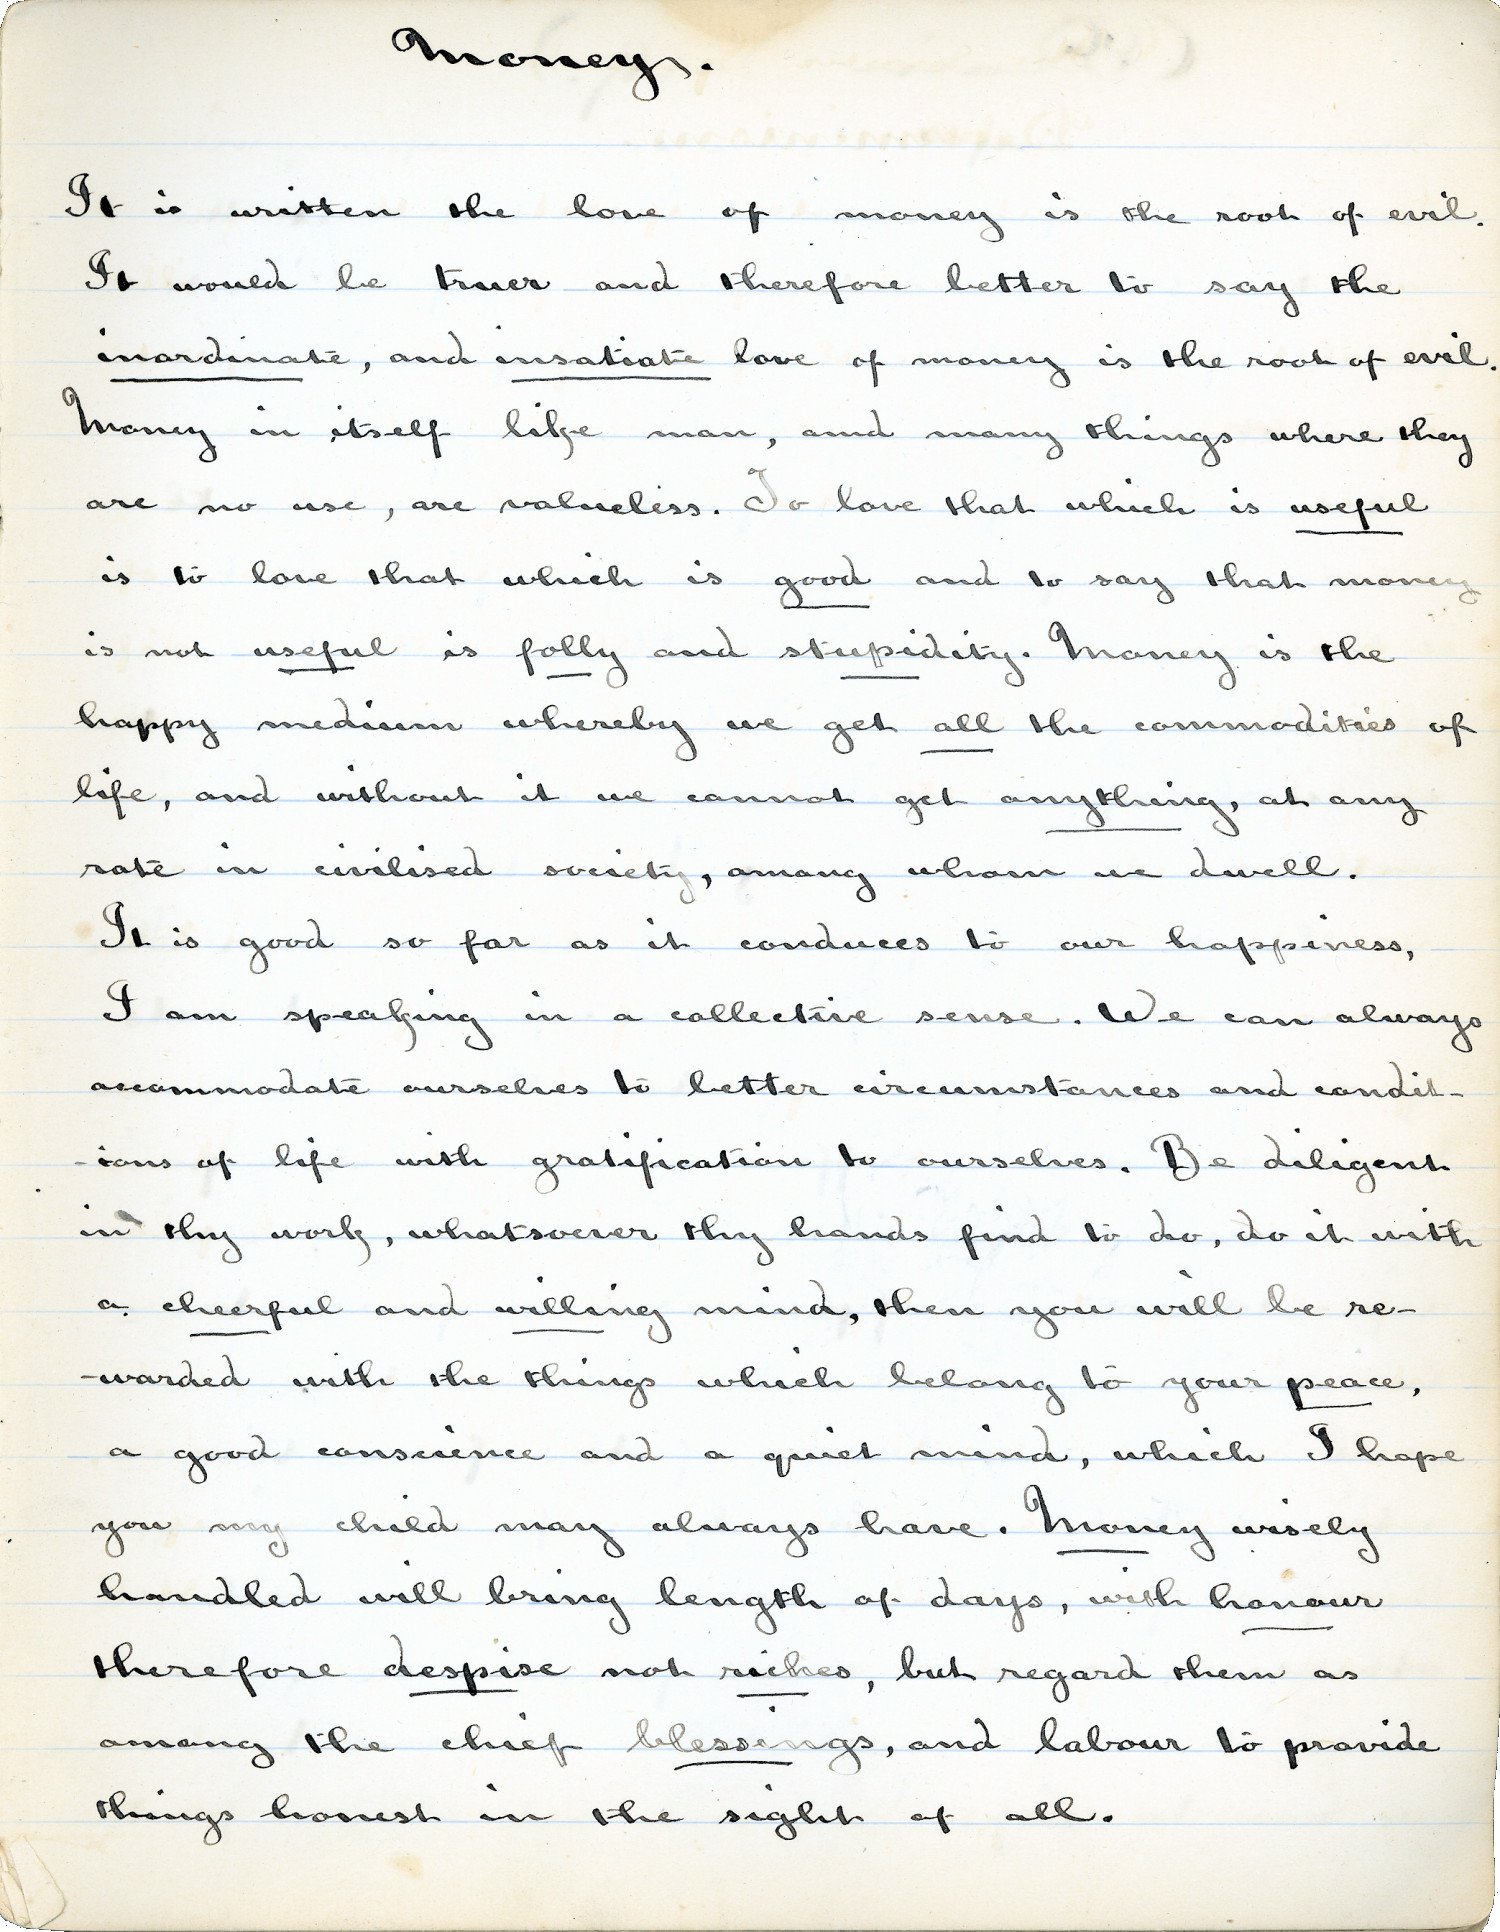 Money.
It is written the love of money is the root of evil.
It would be truer and therefore better to say the
inordinate, and insatiate love of money is the root of evil.
Money in itself like man, and many things where they
are no use, are valueless. To love that which is useful
is to love that which is good and to say that money
is not useful is folly and stupidity. Money is the
happy medium whereby we get all the commodities of
life, and without it we cannot get anything, at any
rate in civilised society, among whom we dwell.
It is good so far as it conduces to our happiness,
I am speaking in a collective sense. We can always
accommodate ourselves to better circumstances and condit-
-ions of life with gratification to ourselves. Be diligent
in thy work, whatsoever thy hands find to do, do it with
a cheerful and willing mind, then you will be re-
-warded with the things which belong to your peace,
a good conscience and a quiet mind, which I hope
you my child may always have. Money wisely
handled will bring length of days, with honour
therefore despise not riches, but regard them as
among the chief blessings, and labour to provide
things honest in the sight of all.